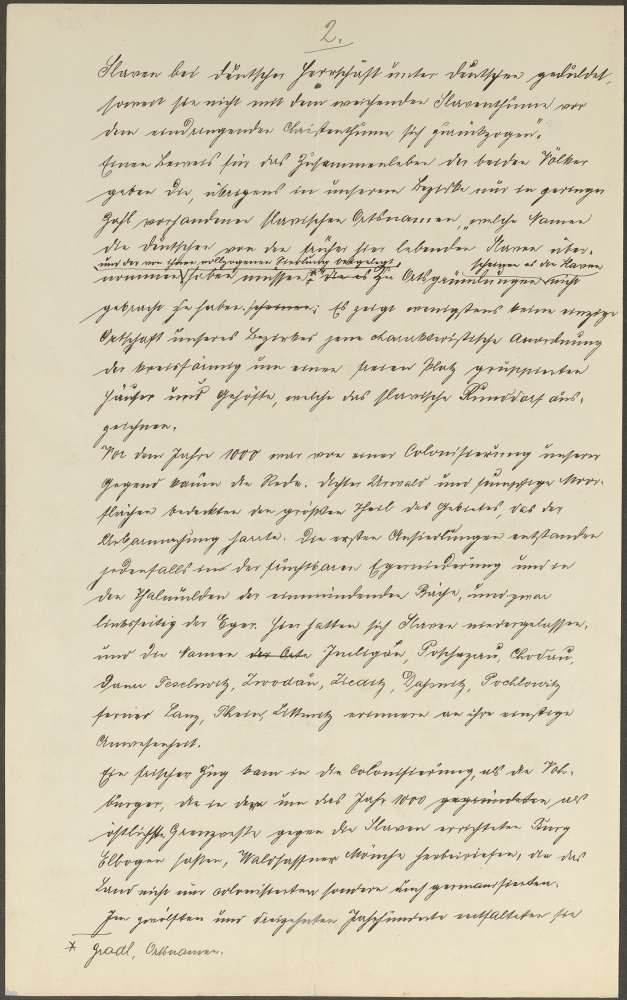 2.
Slaven bei deutscher Herrschaft unter Deutschen geduldet,
soweit sie nicht mit dem weichenden Slaventhume vor
dem eindringenden Christenthume sich zurückzogen".
Einen Beweis für das Zusammenleben der beiden Völker
geben die, übrigens in unserem Bezirke nur in geringer
Zahl vorhandenen slavischen Ortsnamen, "welche Namen
die Deutschen von den früher hier lebenden Slaven über-
und der von ihnen vollzogenen Siedlung beigelegt, scheinen es die Slaven
nommen haben müssen" * die es zu Ortsgründungen nicht
gebracht zu haben. scheinen; Es zeigt wenigstens keine einzige
Ortschaft unseres Bezirkes jene charakteristische Anordnung
der kreisförmig um einen freien Platz gruppierten
Häuser und Gehöfte, welche das slavische Runddorf aus-
zeichnen.
Vor dem Jahre 1000 war von einer Colonisierung unserer
Gegend kaum die Rede. Dichter Urwald und sumpfige Moor-
flächen bedeckten den größten Theil des Gebietes, das der
Urbarmachung harrte. Die ersten Ansiedlungen entstanden
jedenfalls in der fruchtbaren Egerniederung und in
den Thalmulden der einmündenden Bäche, und zwar
linksseitig der Eger. Hier hatten sich Slaven niedergelassen,
und die Namen der Orte Imligau, Poschezau, Chodau,
dann Teschwitz, Zwodau, Zieditz, Daßnitz, Pochlowitz
ferner Lanz, Theins, Littmitz erinnern an ihre einstige
Anwesenheit.
Ein frischer Zug kam in die Colonisierung, als die Voh-
burger, die in der um das Jahr 1000 gegründeten als
östlichste Grenzveste gegen die Slaven errichteten Burg
Elbogen saßen, Waldsassner Mönche herbeiriefen, die das
Land nicht nur colonisierten sondern auch germanisierten.
Im zwölften und dreizehnten Jahrhunderte entfalteten sie
* Gradl, Ortsnamen.